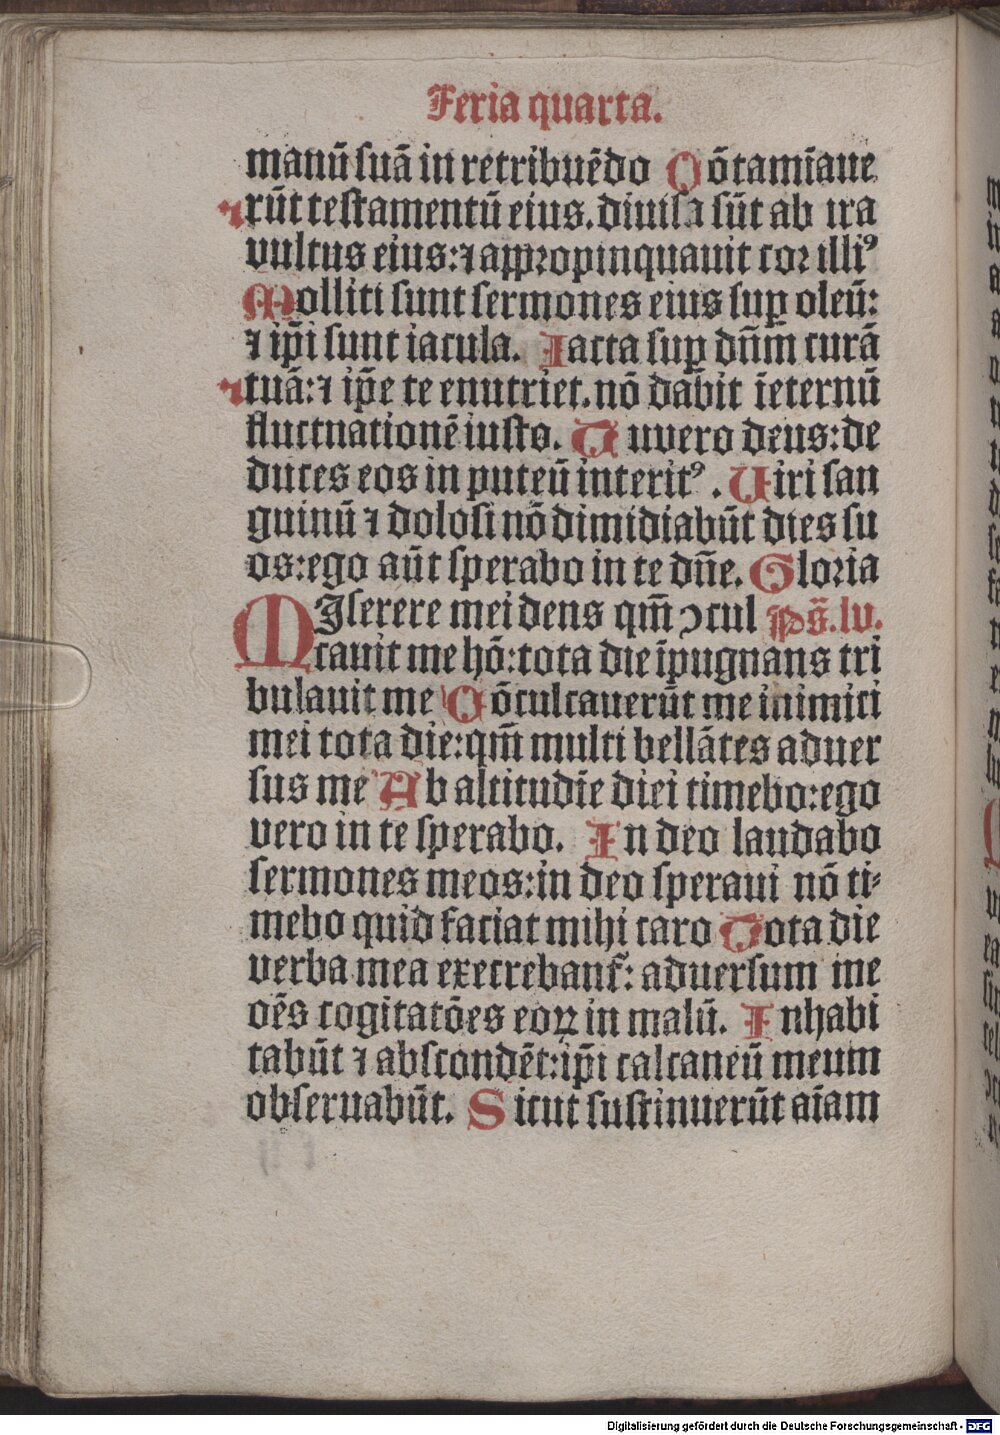 Feria quarta.
manū ſuā in retribuēdo Cōtamīaue
rūt teſtamentū eius. diuiſa ſūt ab ira
vultus eius: ⁊ appꝛopinquauit coꝛ illiꝰ
Molliti ſunt ſermones eius ſuꝑ oleū:
⁊ ip̄i ſunt iacula. Iacta ſuꝑ dn̄m curā
tuā: ⁊ ip̄e te enutriet. nō dab̄it īeternū
fluctuationē iuſto. Tu vero deus: de
duces eos in puteū interitꝰ. Uiri ſan
guinū ⁊ doloſi nō dimidiabūt dies ſu
os: ego aūt ſperabo in te dn̄e. Gloꝛia
MIſerere mei deus qm̄ ↄcul Pſ̄. lv.
cauit me hō: tota die īpugnans tri
bulauit me Cōculcauerūt me inimici
mei tota die: qm̄ multi bellātes aduer
ſus me Ab altitudīe diei timebo: ego
vero in te ſperabo. In deo laudabo
ſermones meos: in deo ſperaui nō ti⸗
mebo quid faciat mihi caro Tota die
verba mea execrebant̄: aduerſum me
oēs cogitatōes eoꝝ in malū. Inhabi
tabūt ⁊ abſcondēt: ip̄i calcaneū meum
obſeruabūt. Sicut ſuſtinuerūt aīam
Digitalisierung gefördert durch die Deutsche Forschungsgemeinschaft - DFG